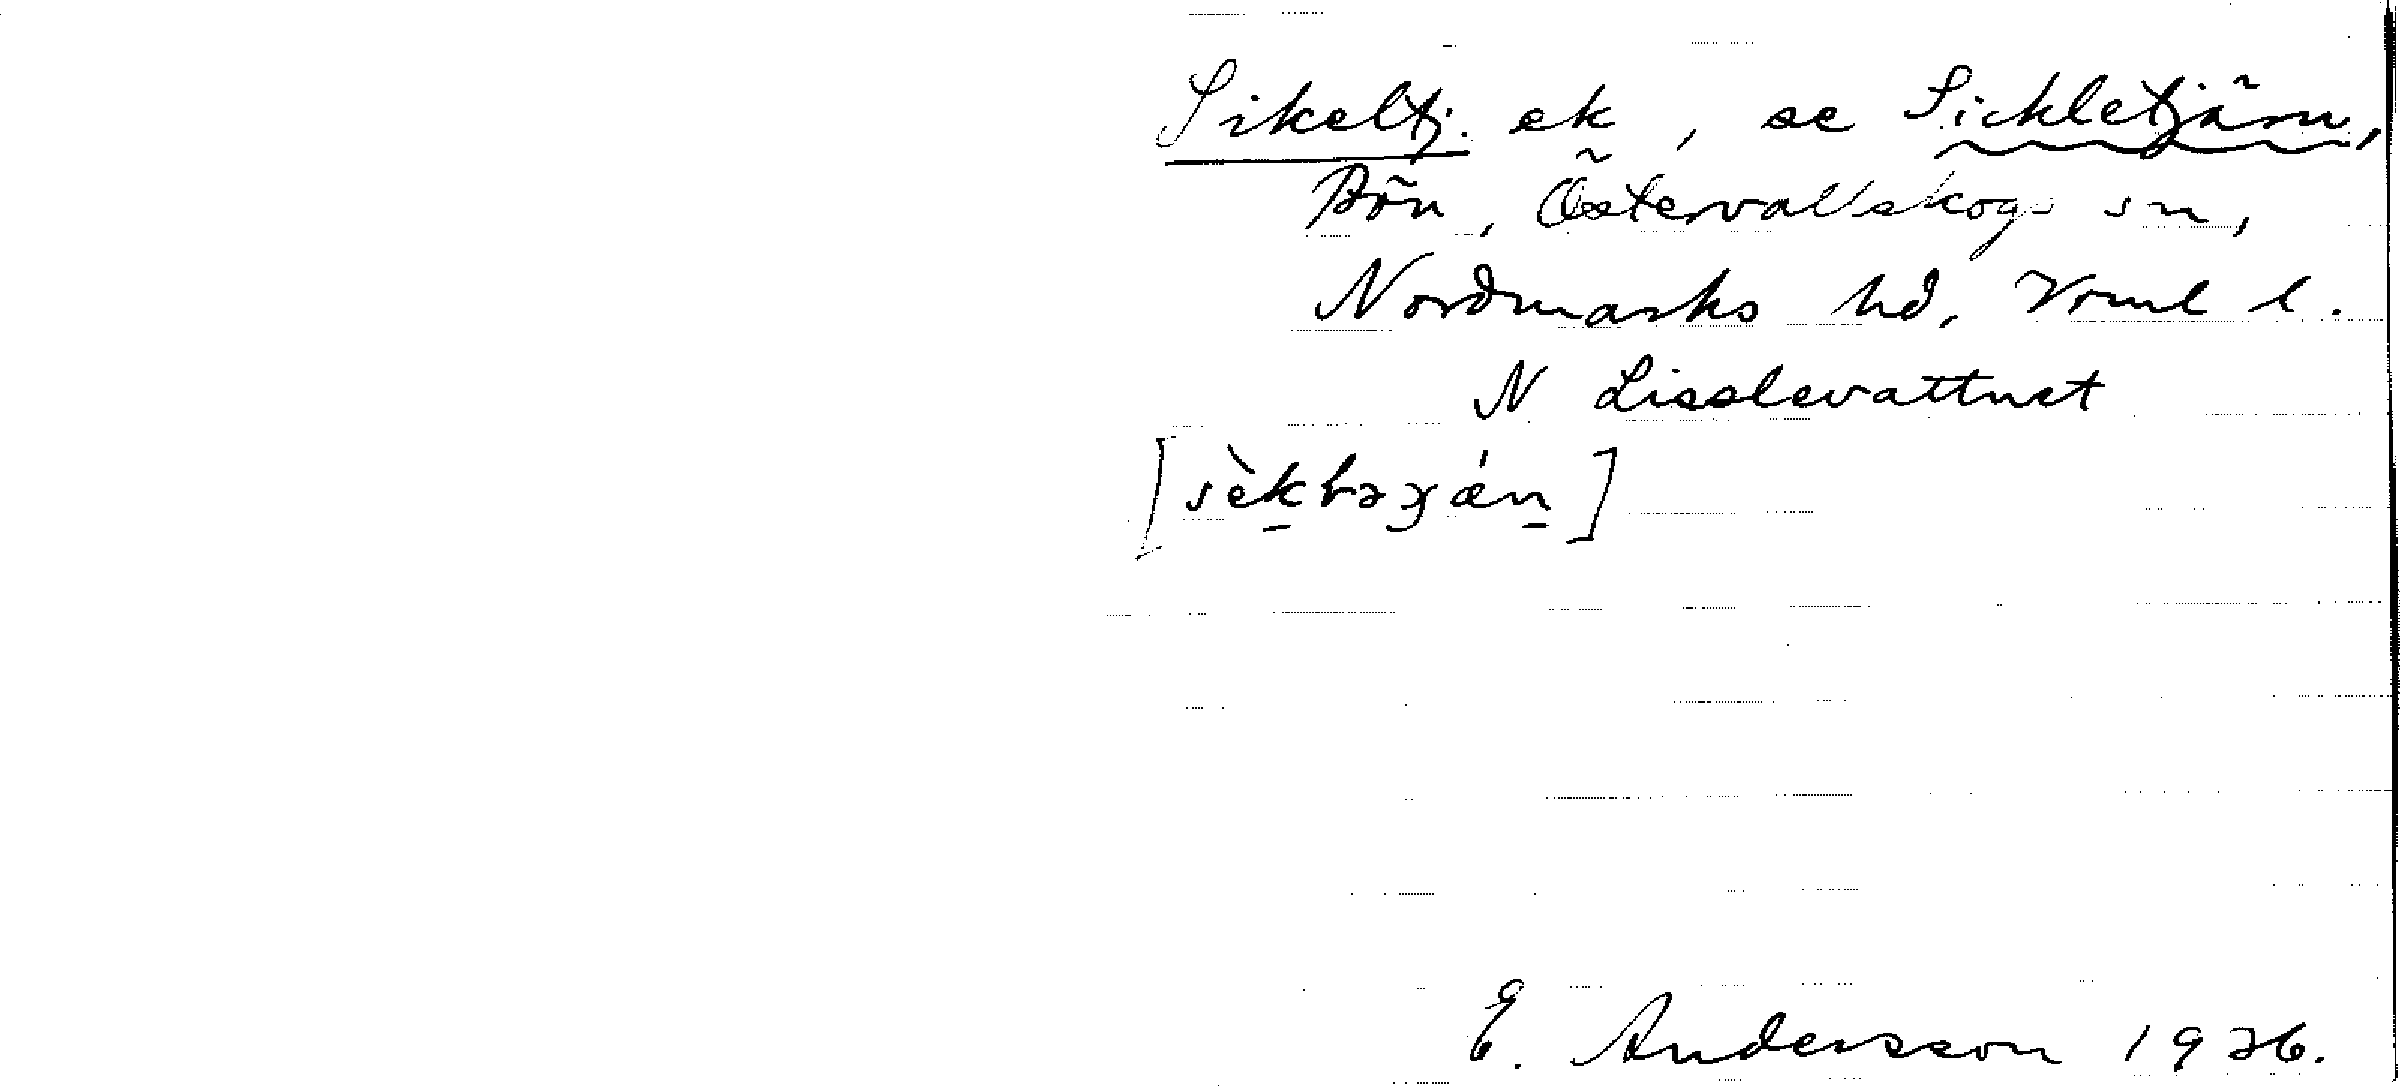 Sikeltj. ek, se Sickletjärn,
Bön, Östervallskogs sn,
Nordmarks hd, Vrml l.
N Lisslevattnet
E. Andersson 1926.